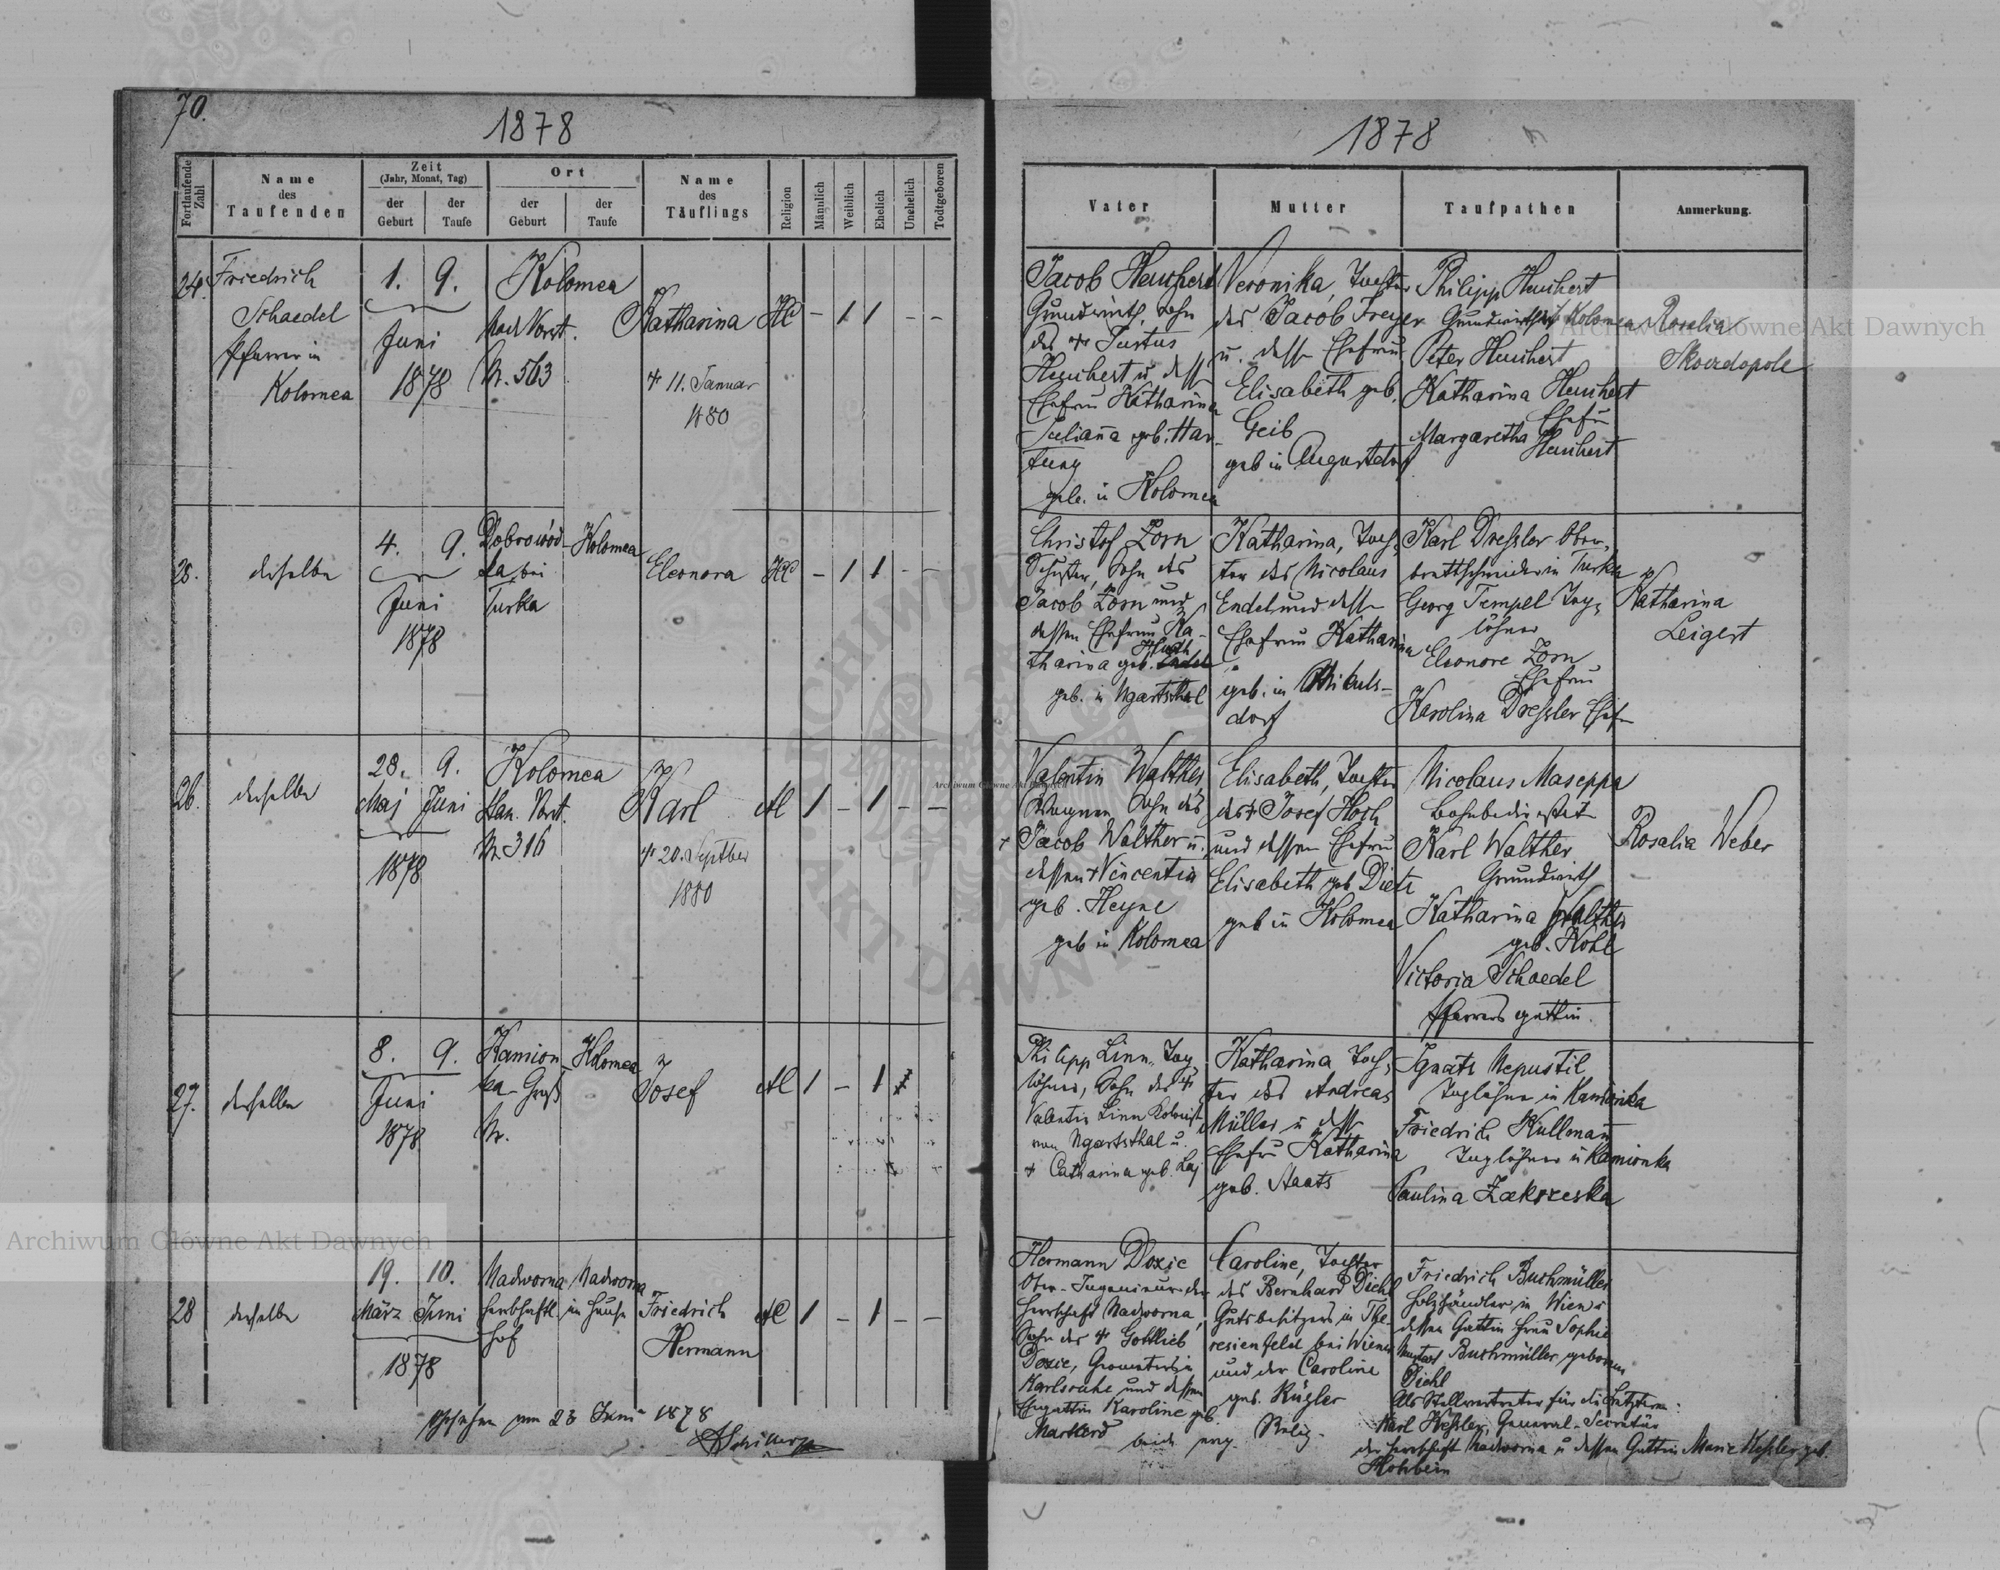 70.
1878
Fortlaufende Zahl
Name des Taufenden
Zeit (Jahr, Monat, Tag)
der Geburt
der Taufe
Ort
der Geburt
der Taufe
Name des Täuflings
Religion
Männlich
Weiblich
Ehelich
Unehelich
Todtgeboren
24.
Friedrich
Schaedel
Pfarrer in
Kolomea
1. 9.
Juni
1878
Kolomea
Nad. Vorst.
Nr. 563
Katharina
+ 11. Januar
1880
HC - 1 1 - -
25.
derselbe
4. 9.
Juni
1878
Dobrowód-
ka bei
Turka
Kolomea
Eleonora
HC - 1 1 - -
26.
derselbe
28. 9.
Maj Juni
1878
Kolomea
Stan. Vorst.
Nr 316
Karl
+ 20. Septber
1880
AC 1 - 1 - -
27.
derselbe
8. 9.
Juni
1878
Kamion-
ka-Groß
Nr.
Kolomea
Josef
AC 1 - 1
28
derselbe
19. 10.
März Juni
1878
Nadworna
herrschaftl.
Hof
Nadworna
im Hause
Friedrich
Hermann
AC 1 - 1 - -
am 23 Juni 1878
1878
Vater
Mutter
Taufpathen
Anmerkung.
Jacob Heuchert
Grundwirth, Sohn
des + Justus
Heuchert u. dess
Ehefrau Katharina
Juliana geb. Har-
tung
geb. in Kolomea
Veronika, Tochter
des Jacob Freyer
u. dessen Ehefrau
Elisabeth geb.
Geib
geb in Augustdorf
Philipp Heuchert
Grundwirth in Kolomea
Peter Heuchert
Katharina Heuchert
Ehefr
Margaretha Heuchert
Rosalia
Skordopole
Christof Zorn
Schuster, Sohn des
Jacob Zorn und
dessen Ehefrau Ka-
tharina geb.
geb. in Ugartsthal
Katharina, Toch-
ter des Nicolaus
Endel und dess
Ehefrau Katharina
geb. in Mikuls-
dorf
Karl Dressler Ober-
brettschneider in Turka
Georg Tempel Tag-
löhner
Eleonore Zorn
Ehefrau
Karolina Dressler Ehefr
Katharina
Leigert
Valentin Walther
Wagner, Sohn des
+ Jacob Walther u.
dessen + Vincentia
geb. Heyne
geb in Kolomea
Elisabeth, Tochter
des + Josef Hoch
und dessen Ehefrau
Elisabeth geb Dietz
geb in Kolomea
Nicolaus Maseppa
Bahnbediensteter
Karl Walther
Grundwirth
Katharina Walther
geb. Kohl
Victoria Schaedel
Pfarrers gattin.
Rosalia Weber
Philipp Linn, Tag-
löhner, Sohn des +
Valentin Linn Kolonist
von Ugartsthal u.
+ Catharina geb. Laj
Katharina Toch-
ter des Andreas
Müller u dess
Ehefr Katharina
geb. Staats
Ignatz Nepustil
Taglöhner in Kamionka
Friedrich Kullmann
Taglöhner in Kamionka
Paulina Zakrzeska
Hermann Doxie
Ober-Ingenieur der
Herrschaft Nadworna,
Sohn des + Gottlieb
Doxie, Geometer in
Karlsruhe und dessen
Ehegattin Karoline geb.
beide evang. Relig.
Caroline, Tochter
des Bernhard Diehl
Gutsbesitzers in The-
resienfeld bei Wiener
Neustadt
und der Caroline
geb. Kügler
Friedrich Buchmüller
Holzhändler in Wien u
dessen Gattin Frau Sophie
Buchmüller geborene
Diehl
Als Stellvertreter für die Letztern:
Karl Kessler, General-Secretär
der Herrschaft Nadworna u dessen Gattin Marie Kessler geb.
Hohbein
Archiwum Główne Akt Dawnych
Archiwum Główne Akt Dawnych
Archiwum Główne Akt Dawnych